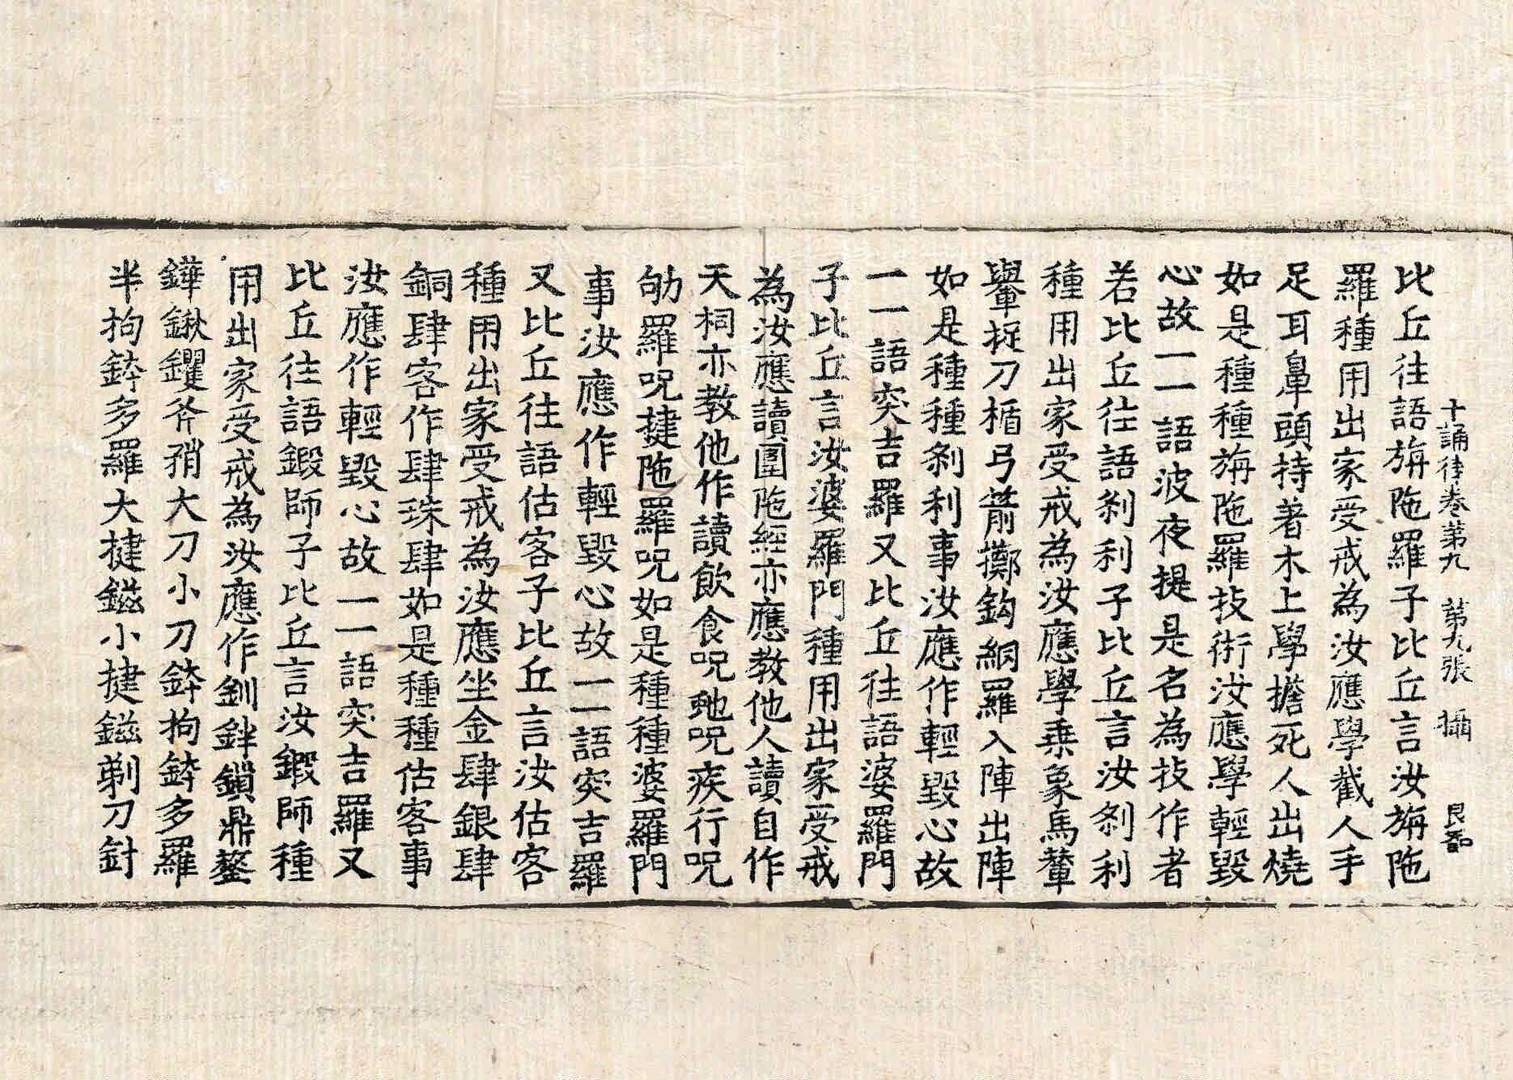 十誦律卷第九　第九張　攝　良器
比丘往語旃陁羅子比丘言汝旃陁
羅種用出家受戒為汝應學截人手
足耳鼻頭持著木上學擔死人出燒
如是種種旃陁羅技術汝應學輕毀
心故一一語波夜提是名為技作者
若比丘往語刹利子比丘言汝刹利
種用出家受戒為汝應學乗象馬輦
轝捉刀楯弓箭擲鈎網羅入陣出陣
如是種種刹利事汝應作輕毀心故
一一語突吉羅又比丘往語婆羅門
子比丘言汝婆羅門種用出家受戒
為汝應讀圍陁經亦應教他人讀自作
天祠亦教他作讀飲食呪虵呪疾行呪
劬羅呪揵陁羅呪如是種種婆羅門
事汝應作輕毀心故一一語突吉羅
又比丘往語估客子比丘言汝估客
種用出家受戒為汝應坐金肆銀肆
銅肆客作肆珠肆如是種種估客事
汝應作輕毀心故一一語突吉羅又
比丘往語鍛師子比丘言汝鍛師種
用出家受戒為汝應作釧鉡鎖鼎鏊
鏵鍬钁斧矟大刀小刀鉢拘鉢多羅
半拘鉢多羅大揵鎡小揵鎡剃刀針